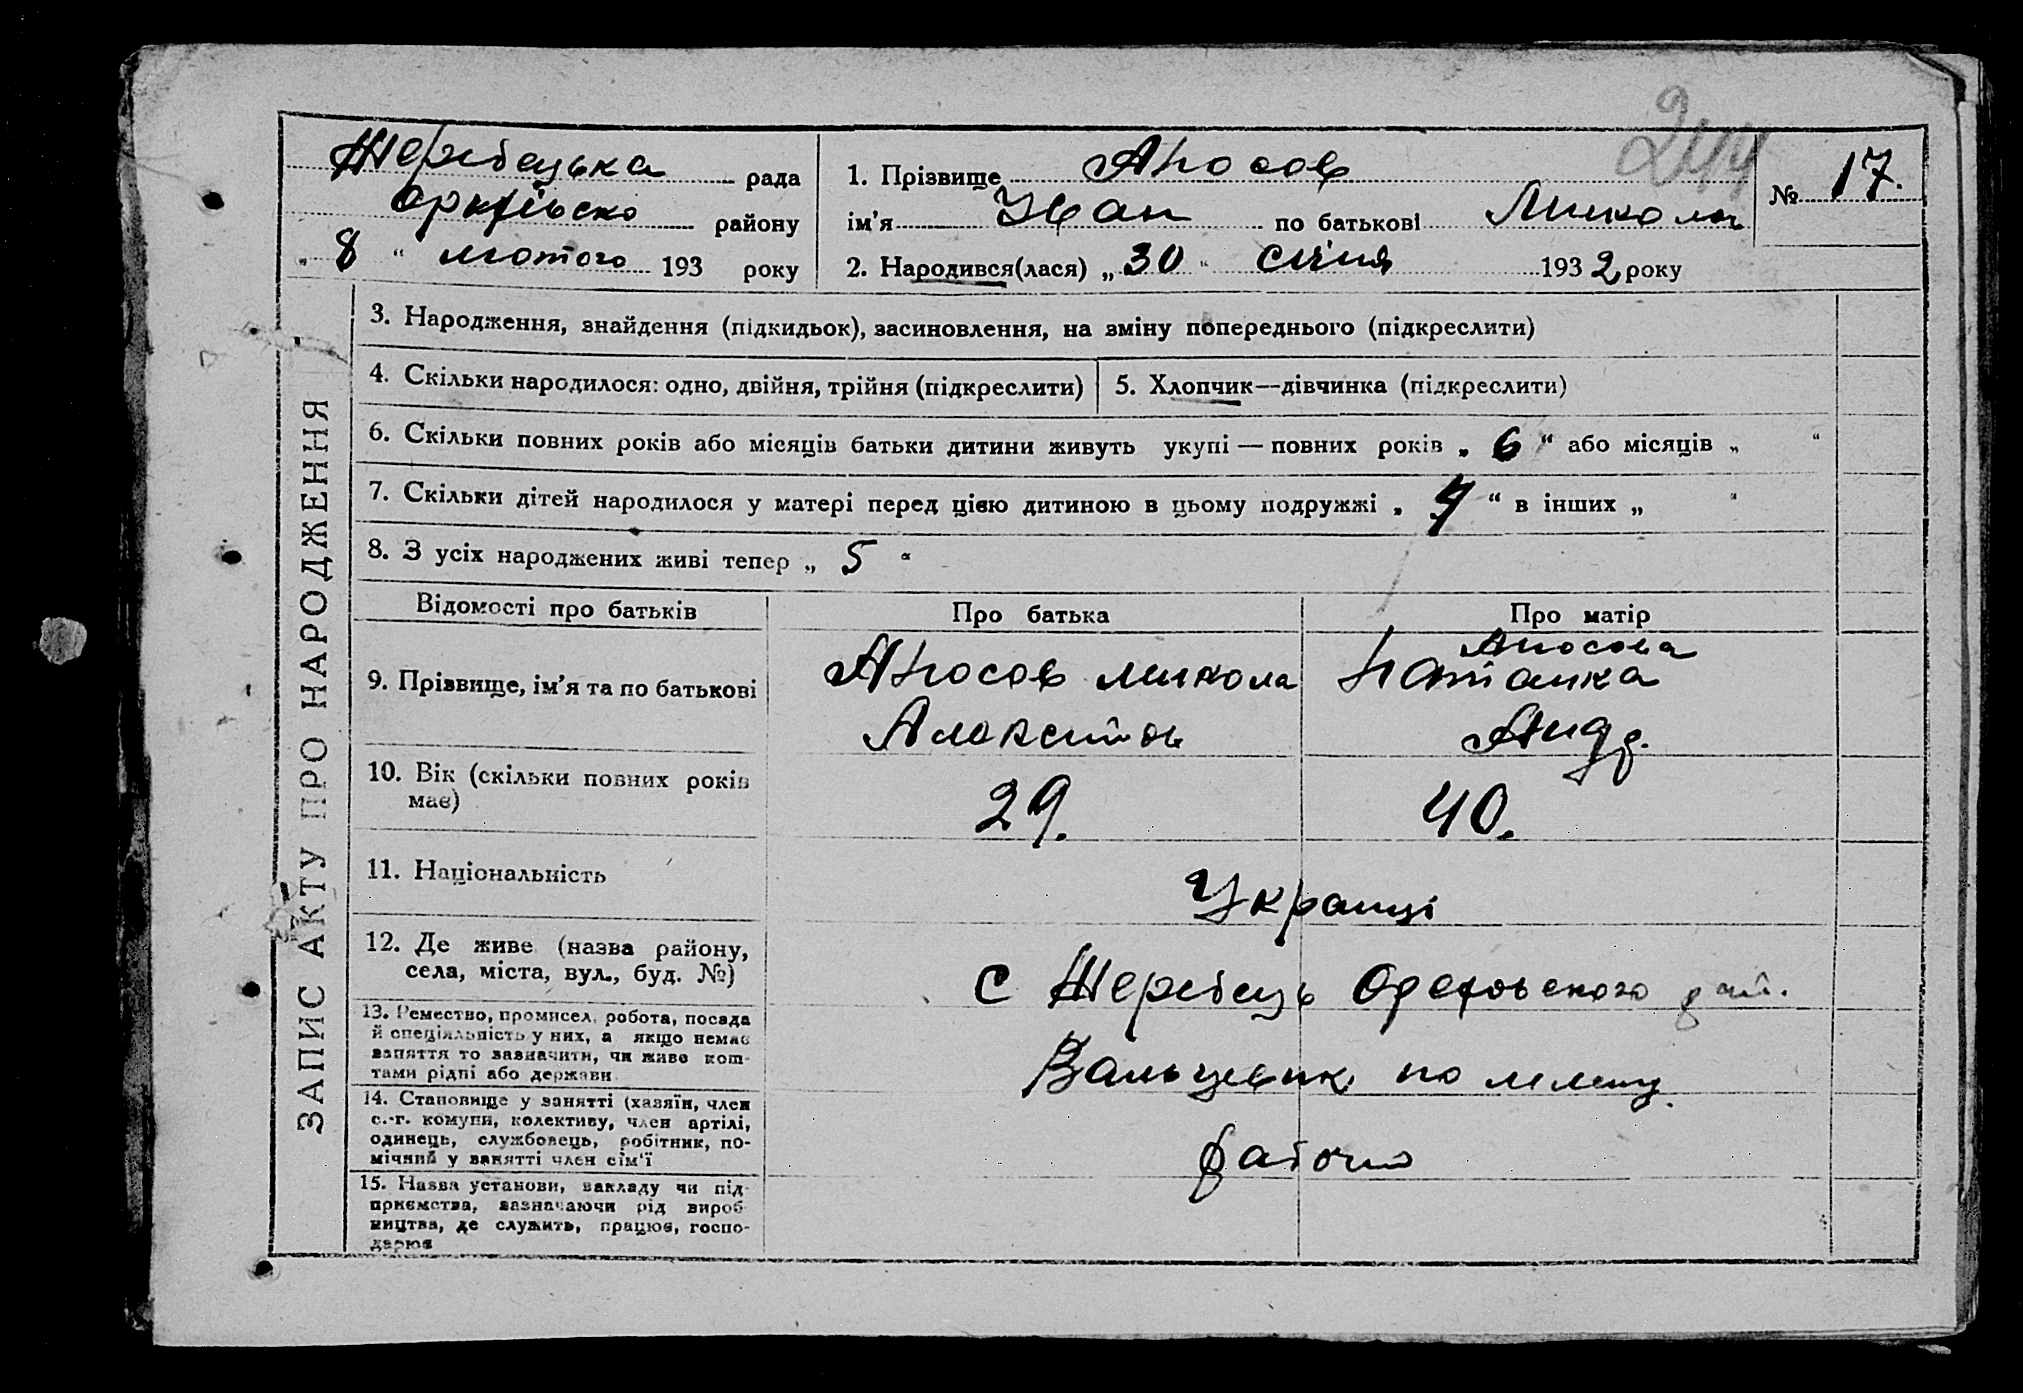 244
Жеребецька рада
Оріхівсько району
„ 8 “ лютого 193 року
1. Прізвище Аносов
ім’я Иван по батькові Микола
№ 17.
2. Народився(лася) „ 30 “ січня 1932 року
ЗАПИС АКТУ ПРО НАРОДЖЕННЯ
3. Народження, знайдення (підкидьок), засиновлення, на зміну попереднього (підкреслити)
4. Скільки народилося: одно, двійня, трійня (підкреслити)
5. Хлопчик—дівчинка (підкреслити)
6. Скільки повних років або місяців батьки дитини живуть укупі — повних років „ 6 “ або місяців „ “
7. Скільки дітей народилося у матері перед цією дитиною в цьому подружжі „ 4 “ в інших „ “
8. З усіх народжених живі тепер „ 5 “
Відомості про батьків
Про батька
Про матір
9. Прізвище, ім’я та по батькові
Аносов Микола
Аносова
Андр.
10. Вік (скільки повних років
має)
29.
40.
11. Національність
Украинці
12. Де живе (назва району,
села, міста, вул., буд. №)
с Жеребець Ореховского рай.
13. Ремество, промисел, робота, посада
й спеціяльність у них, а якщо немає
заняття то зазначити, чи живе кош-
тами рідні або держави
Вальцевик по млину
14. Становище у занятті (хазяїн, член
с.-г. комуни, колективу, член артілі,
одинець, службовець, робітник, по-
мічний у занятті член сім’ї
рабочий
15. Назва установи, закладу чи під-
приємства, зазначаючи рід вироб-
ництва, де служить, працює, госпо-
дарює